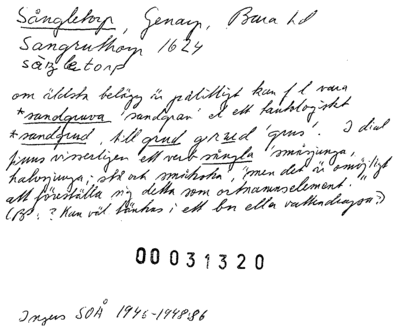 Sångletorp, Genarp, Bara hd
Sangruthorp 1624
såŋletorp
om äldsta belägg är pålitligt kan f l vara
*sandgruva 'sandgrav' el ett tautologiskt
*sandgrud, till grud grud 'grus'. I dial
finns visserligen ett verb sångla 'småsjunga,
halvsjunga; stå och småkoka', "men det är omöjligt
att föreställa sig detta som ortnamnselement."
(? Kan väl tänkas i ett bn eller vattendragsn?)
00031320
Ingers SOÅ 1946-1948:86